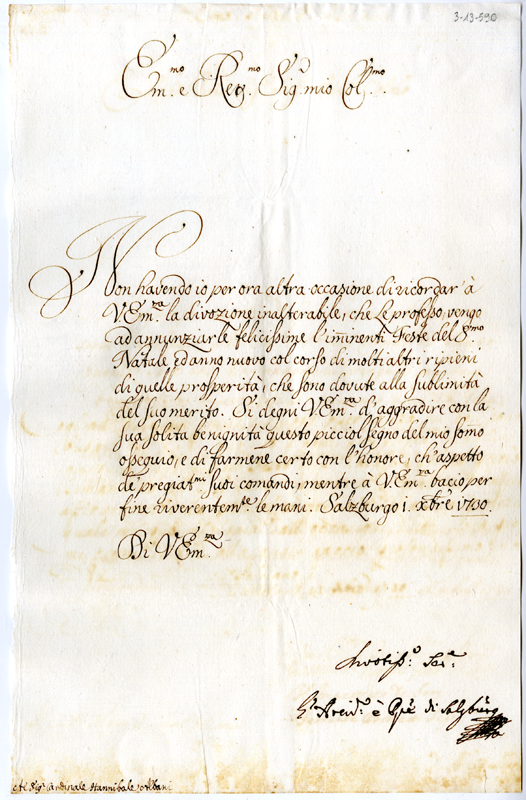 3-13-590
Em.mo e Rev.mo Sig.r mio Col.mo
Non havendo io per ora altra occasione di ricordar' à
VEm.za la divozione inalterabile, che Le professo, vengo
ad annunziarLe felicissime l'imminenti Feste del S.mo
Natale, ed anno nuovo col corso di molti altri ripieni
di quelle prosperità, che sono dovute alla sublimità
del suo merito. Si degni VEm.za d'aggradire con la
sua solita benignità questo picciol segno del mio som̃o
ossequio, e di farmene certo con l'honore, ch'aspetto
de' pregiat.mi suoi comandi, mentre à VEm.za bacio per
fine riverentem.te le mani. Salzburgo 1. Xbre 1730.
Di VEm.za
divotiss.o Ser.e
Arciv.o è Pñpe di Salzburg
Al Sig.r Cardinale Hannibale Albani